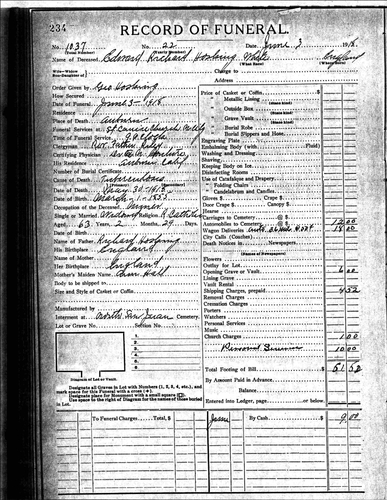 234
RECORD OF FUNERAL.
No. 1037 No. 22 Date June 3 1918
(Total Number) (Yearly Number)
Name of Deceased Edward Richard Hosking White England
(What Race) (Where Born)
Charge to
Address
Order Given by Geo Hosking
How Secured
Date of Funeral June 3-1918
Residence
Place of Death Auburn
Funeral Services at
Time of Funeral Service
Clergyman Rev. Father
Certifying Physician
His Residence Auburn Caly
Number of Burial Certificate
Cause of Death Tuberculosis
(Primary) (Secondary)
Date of Death May 30-1918
Date of Birth March 1-1855
Occupation of the Deceased Miner
Single or Married Widower Religion Catholic
Aged 63 Years, 2 Months, 29 Days.
Date of Birth
Name of Father Richard Hosking
His Birthplace England
Name of Mother
Her Birthplace England
Mother's Maiden Name Ann Hall
Body to be shipped to
Size and Style of Casket or Coffin
Manufactured by
Interment at North San Juan Cemetery.
Lot or Grave No. Section No.
1.
2.
3.
4.
5.
6.
Diagram of Lot or Vault.
Designate all Graves in Lot with Numbers (1, 2, 3, 4, etc.), and mark space for this Funeral with a cross
Designate place for Monument with a small square
Use space to the right of Diagram for the names of those buried in Lot.
Price of Casket or Coffin $
" Metallic Lining
(State kind)
" Outside Box
(State kind)
" Grave Vault
(State kind)
" Burial Robe
" Burial Slippers and Hose
Engraving Plate
Embalming Body (with Fluid)
Washing and Dressing
Shaving
Keeping Body on Ice
Disinfecting Rooms
Use of Catafalque and Drapery
" Folding Chairs
" Candelabrum and Candles
Gloves $ Crape $
Door Crape $ Canopy $
Hearse
Carriages to Cemetery @ $
Automobiles to Cemetery @ $ 12 00
Wagon Deliveries 18 00
City Calls (Coaches)
Death Notices in Newspapers
(Names of Newspapers)
Flowers
Outlay for Lot
Opening Grave or Vault 6 00
Lining Grave
Vault Rental
Shipping Charges, prepaid 4 52
Removal Charges
Cremation Charges
Porters
Watchers
Personal Services
Music
Church Charges 1 00
Personal Services 10 00
Total Footing of Bill $ 51 52
By Amount Paid in Advance
Balance
Entered into Ledger, page or below
To Funeral Charges Total, $ June By Cash $ 9 00